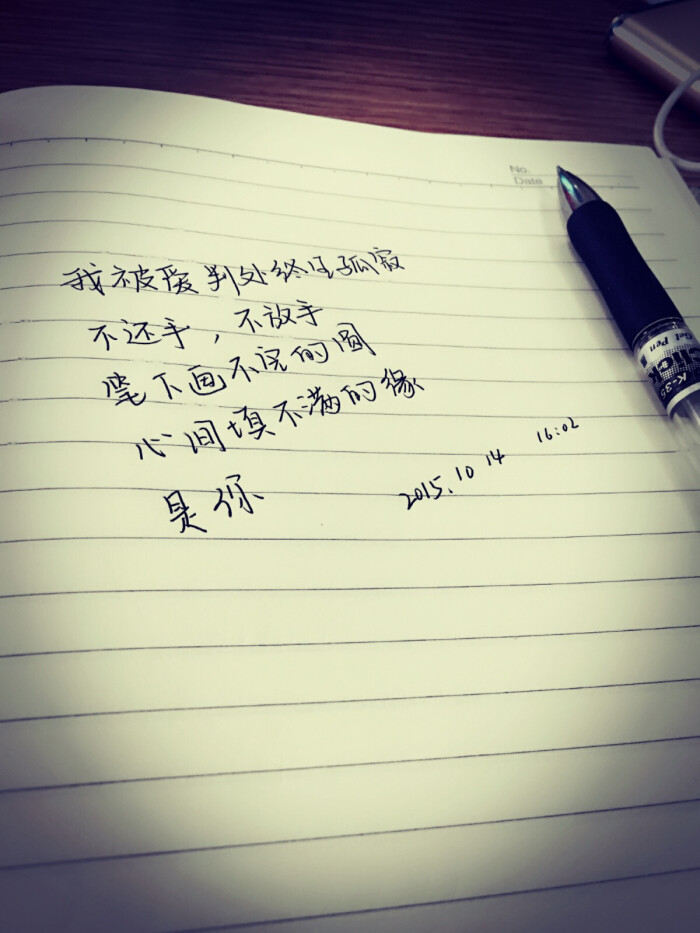 No.
Date
我被爱判处终生孤寂
不还手，不放手
笔下画不完的圆
心间填不满的缘
是你
2015.10 14 16:02
Gel Pen
K-35